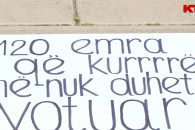 120 emra
që kurrrrë
më nuk duhet
votuar